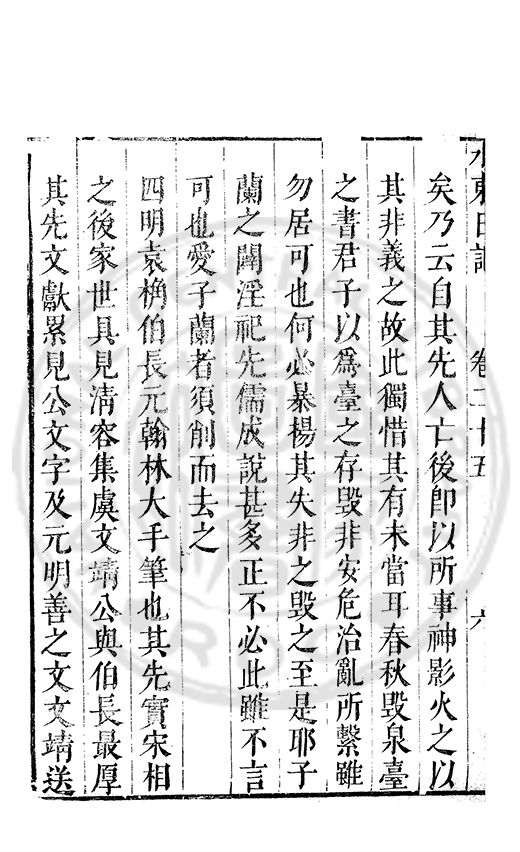 水東日記 卷二十五 六
矣乃云自其先人亡後卽以所事神影火之以
其非義之故此獨惜其有未當耳春秋毀泉臺
之書君子以爲臺之存毀非安危治亂所繫雖
勿居可也何必暴楊其失非之毀之至是耶子
蘭之闢淫祀先儒成說甚多正不必此雖不言
可也愛子蘭者須削而去之
四明袁桷伯長元翰林大手筆也其先實宋相
之後家世具見清容集虞文靖公與伯長最厚
其先文獻累見公文字及元明善之文文靖送